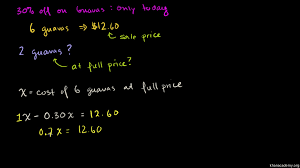 30% off on Guavas: only today
6 guavas ⇒ $12.60
sale price
2 guavas?
at full price?
x = cost of 6 guavas at full price
1x - 0.30x = 12.60
0.7x = 12.60
khanacademy.org